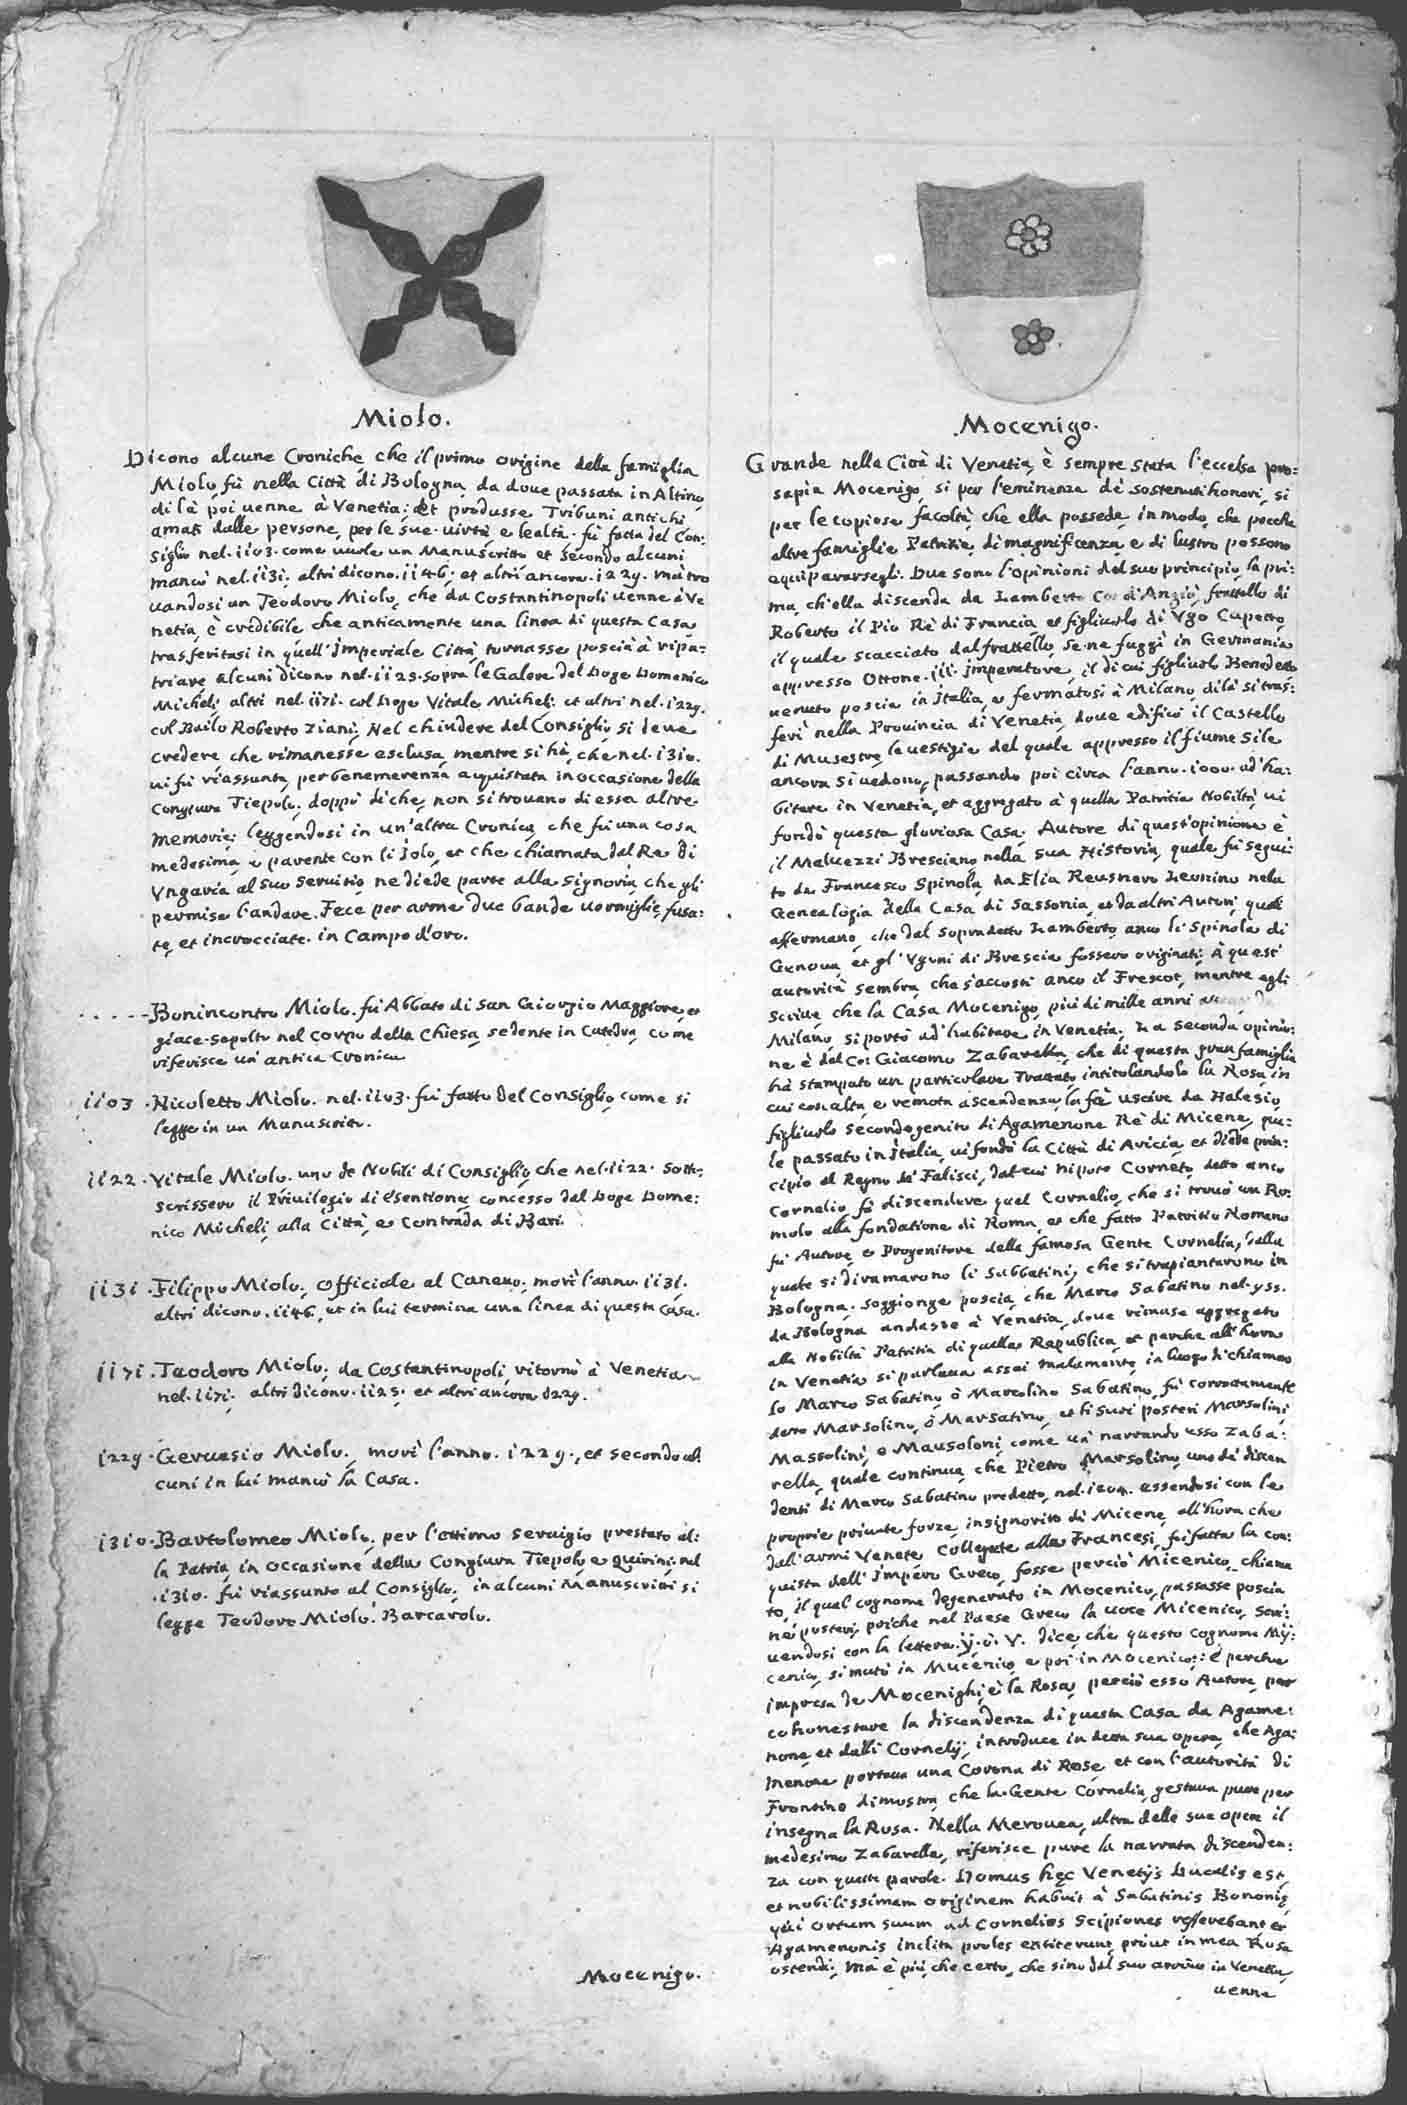 Miolo.
Dicono alcune Croniche che il primo origine della famiglia
Miolo, fù nella Città di Bologna, da doue passata in Altino,
di là poi uenne à Venetia; et produsse Tribuni antichi
amati dalle persone, per le sue uirtù e lealtà. fù fatta del Con:
siglio nel .1103. come uuole un Manuscritto et secondo alcuni
mancò nel .1131. altri dicono .1146. et altri ancora .1229. mà tro
uandosi un Teodoro Miolo, che da Costantinopoli uenne à Ve
netia, è credibile che anticamente una linea di questa Casa
trasferitasi in quell'Imperiale Città, tornasse poscia à ripa:
triare alcuni dicono nel .1125. sopra le Galere del Doge Domenico
Micheli altri nel .1171. col Doge Vitale Micheli et altri nel .1229.
col Bailo Roberto Ziani; Nel chiudere del Consiglio si deue
credere che rimanesse esclusa, mentre si hà, che nel .1310.
ui fù riassunta, per benemerenza acquistata in occasione della
Congiura Tiepolo; doppò di che, non si trouano di essa altre
memorie; leggendosi in un'altra Cronica, che fù una cosa
medesima, e parente con li Iolo, et che chiamata dal Re di
Vngaria al suo seruitio ne diede parte alla Signoria, che gli
permise l'andare. Fece per arme due bande uermiglie, fusa:
te, et incrocciate in Campo d'oro.
Bonincontro Miolo. fù Abbate di San Giorgio Maggiore, et
giace sepolto nel corpo della Chiesa, sedente in Catedra, come
riferisce un'antica Cronica
1103 . Nicoletto Miolo. nel .1103. fù fatto del Consiglio, come si
legge in un Manuscritto.
1122 . Vitale Miolo. uno de Nobili di Consiglio, che nel .1122. Sotto:
scrissero il Priuilegio di Esentione concesso dal Doge Dome:
nico Micheli, alla Città, e Contrada di Bari.
1131 . Filippo Miolo. Officiale al Caneuo; morì l'anno .1131.
altri dicono .1146. et in lui termina una linea di questa Casa.
1171 . Teodoro Miolo; da Costantinopoli, ritornò à Venetia
nel .1171. altri dicono .1125. et altri ancora 1229.
1229 . Geruasio Miolo. morì l'anno .1229., et secondo al:
cuni in lui mancò la Casa.
1310 . Bartolomeo Miolo, per l'ottimo seruigio prestato al:
la Patria, in occasione della Congiura Tiepolo, e Quirini, nel
.1310. fù riassunto al Consiglio; in alcuni Manuscritti si
legge Teodoro Miolo Barcarolo.
Mocenigo.
Mocenigo.
Grande nella Città di Venetia, è sempre stata l'eccelsa pro:
sapia Mocenigo, si per l'eminenza de sostenuti honori, si
per le copiose facoltà, che ella possede, in modo, che pocche
altre famiglie Patritie, di magnificenza, e di lustro possono
equipararsegli. Due sono l'opinioni del suo principio, la pri:
ma, ch'ella discenda da Lamberto Co: d'Angiò, frattello di
Roberto il Pio Rè di Francia, et figliuolo di Vgo Capetto,
il quale scacciato dal frattello, se ne fuggì in Germania
appresso Ottone .III. Imperatore, il di cui figliuolo Benedetto
uenuto poscia in Italia, e fermatosi à Milano, di là si tras:
ferì nella Prouincia di Venetia, doue edificò il Castello
di Musestre, le uestigie del quale appresso il fiume Sile
ancora si uedono, passando poi circa l'anno .1000. ad ha:
bitare in Venetia, et aggregato à quella Patritia Nobiltà, ui
fondò questa gloriosa Casa. Autore di quest'opinione è
il Maluezzi Bresciano nella sua Historia, quale fù segui:
to da Francesco Spinola, da Elia Reusnero Leorino nela
Genealogia della Casa di Sassonia, et da altri Autori, quali
affermano, che dal sopradetto Lamberto, anco li Spinola di
Genoua, et gl'Vgoni di Brescia fossero originati; à quest'
autorità sembra, che s'accosti anco il Frescot, mentre egli
scriue, che la Casa Mocenigo, più di mille anni
Milano, si portò ad'habitare in Venetia. La seconda opinio:
ne è del Co: Giacomo Zabarella, che di questa gran famiglia
hà stampato un particolare Trattato, intitolandolo la Rosa, in
cui con alta, e remota ascendenza, la fà uscire da Halesio,
figliuolo secondogenito di Agamenone Rè di Micene, qua:
le passato in Italia, ui fondò la Città di Aricia, et diede prin:
cipio al Regno de Falisci, dal cui nipote Corneto, detto anco
Cornelio, fà discendere quel Cornelio, che si trouò con Ro:
molo alla fondatione di Roma, et che fatto Patritio Romano
fù Autore, e Progenitore della famosa Gente Cornelia, dalla
quale si diramarono li Sabbatini, che si trapiantarono in
Bologna. Soggionge poscia, che Marco Sabatino nel .955.
da Bologna andasse à Venetia, doue rimase aggregato
alla Nobiltà Patritia di quella Republica, et perche all'hora
in Venetia si parlaua assai malamente, in luogo di chiamar
lo Marco Sabatino, ò Marcolino Sabatino, fù corrottamente
detto Marsolino, ò Marsatino, et li suoi posteri Marsolini,
Massolini, e Mausoloni, come uà narrando esso Zaba:
rella, quale continua, che Pietro Marsolino, uno de discen
denti di Marco Sabatino predetto, nel .1204. essendosi con le
proprie priuate forze, insignorito di Micene, all'hora che
dall'armi Venete, Collegate alle Francesi, fù fatta la con:
quista dell'Impero Greco, fosse perciò Micenico, chiama
to, il qual cognome degenerato in Mocenico, passasse poscia
ne posteri, poiche nel Paese Greco la uoce Micenico, Scri:
uendosi con la lettera .ÿ. ò .V. dice, che questo cognome Mÿ:
cenico, si mutò in Mucenico, e poi in Mocenico; È perche
impresa de Mocenighi è la Rosa, perciò esso Autore, per
cohonestare la discendenza di questa Casa da Agame:
none, et dalli Cornelÿ, introduce in detta sua opera, che Aga:
menone portaua una Corona di Rose, et con l'autorità di
Frontino dimostra, che la Gente Cornelia, gestaua pure per
insegna la Rosa. Nella Merouea, altra delle sue opere il
medesimo Zabarella, riferisce pure la narrata discenden:
za con queste parole. Domus hęc Venetÿs Ducalis est,
et nobilissimam originem habuit à Sabatinis Bononię,
qui ortum suum ad Cornelios Scipiones refferebant et
Agamenonis inclita proles extiterunt, prout in mea Rosa
ostendi; Mà è più che certo, che sino dal suo arriuo in Venetia,
uenne